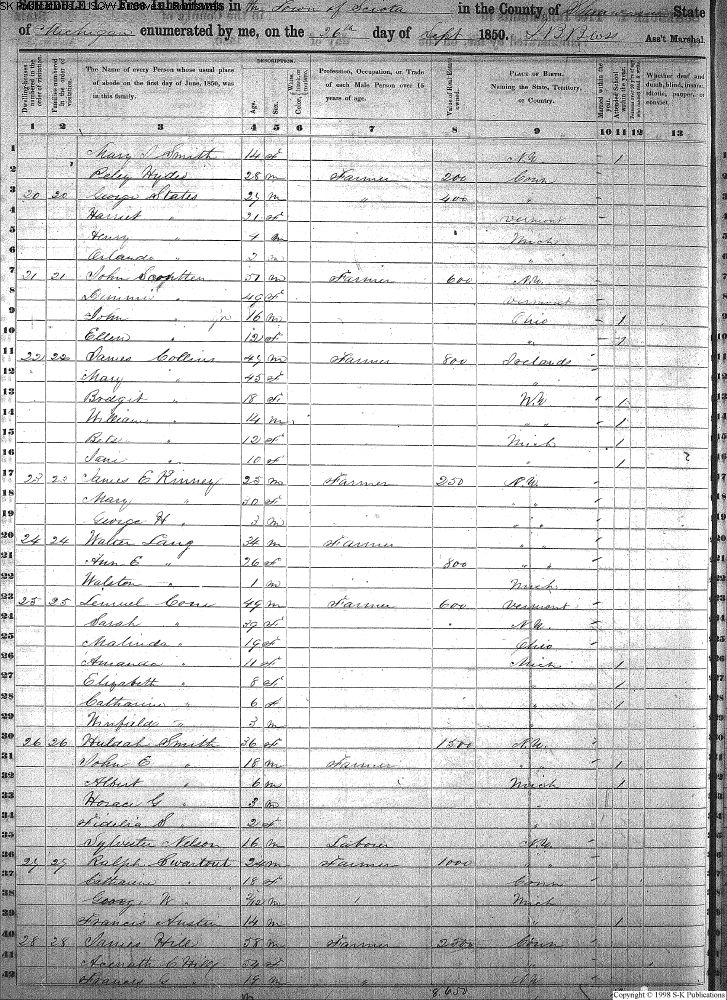 SCHEDULE I. Free Inhabitants in the Town of Sciota in the County of State
of Michigan enumerated by me, on the 26th day of Sept 1850. Ass't Marshal.
DESCRIPTION.
Dwelling-houses numbered in the order of visitation.
Families numbered in the order of visitation.
The Name of every Person whose usual place of abode on the first day of June, 1850, was in this family.
Age.
Sex.
Profession, Occupation, or Trade of each Male Person over 15 years of age.
Value of Real Estate owned.
PLACE OF BIRTH. Naming the State, Territory, or Country.
Married within the year.
Attended School within the year.
Whether deaf and dumb, blind, insane, idiotic, pauper, or convict.
1 2 3 4 5 6 7 8 9 10 11 12 13
1 Mary Smith 14 f N.Y. 1
2 Hyde 28 m Farmer 200 Conn
3 20 20 George States 27 m " 400 "
4 Harriet " 21 f Vermont
5 Henry " 4 m Mich
6 Orlando " 2 m "
7 21 21 John 51 m Farmer 600 N.Y.
8 " 49 f Vermont
9 John " jr 16 m Ohio 1
10 Ellen " 12 f " 1
11 22 22 James Collins 47 m Farmer 800 Ireland
12 Mary " 45 f "
13 Bridgit " 18 f N.Y. 1
14 William " 14 m " " 1
15 Betsy " 12 f Mich 1
16 Jane " 10 f " 1
17 23 23 James E Kinney 25 m Farmer 250 N.Y.
18 Mary " 30 f " "
19 George H " 3 m " "
20 24 24 Walter Lang 34 m Farmer " "
21 Ann E " 26 f 800 " "
22 Walston " 1 m Mich
23 25 25 Lemuel Cone 49 m Farmer 600 Vermont
24 Sarah " 39 f N.Y.
25 Malinda " 19 f Ohio
26 Amanda " 11 f Mich 1
27 Elizabeth " 8 f " 1
28 Catharine " 6 f " 1
29 Winfield " 3 m "
30 26 26 Huldah Smith 36 f 1500 N.Y.
31 John E " 18 m Farmer " 1
32 Albert " 6 m Mich 1
33 Horace G " 3 m "
34 Fidelia S " 2 f "
35 Sylvester Nelson 16 m Labour N.Y.
36 27 27 Ralph Swartout 24 m Farmer 1000 " "
37 Catharine " 18 f Conn
38 George W " m Mich
39 Francis Austin 14 m " 1
40 28 28 James Hill 58 m Farmer 2500 Conn
41 Asenath C Hill 54 f "
42 Francis G " 19 m " N.Y.
8.650
Copyright © 1998 S-K Publications